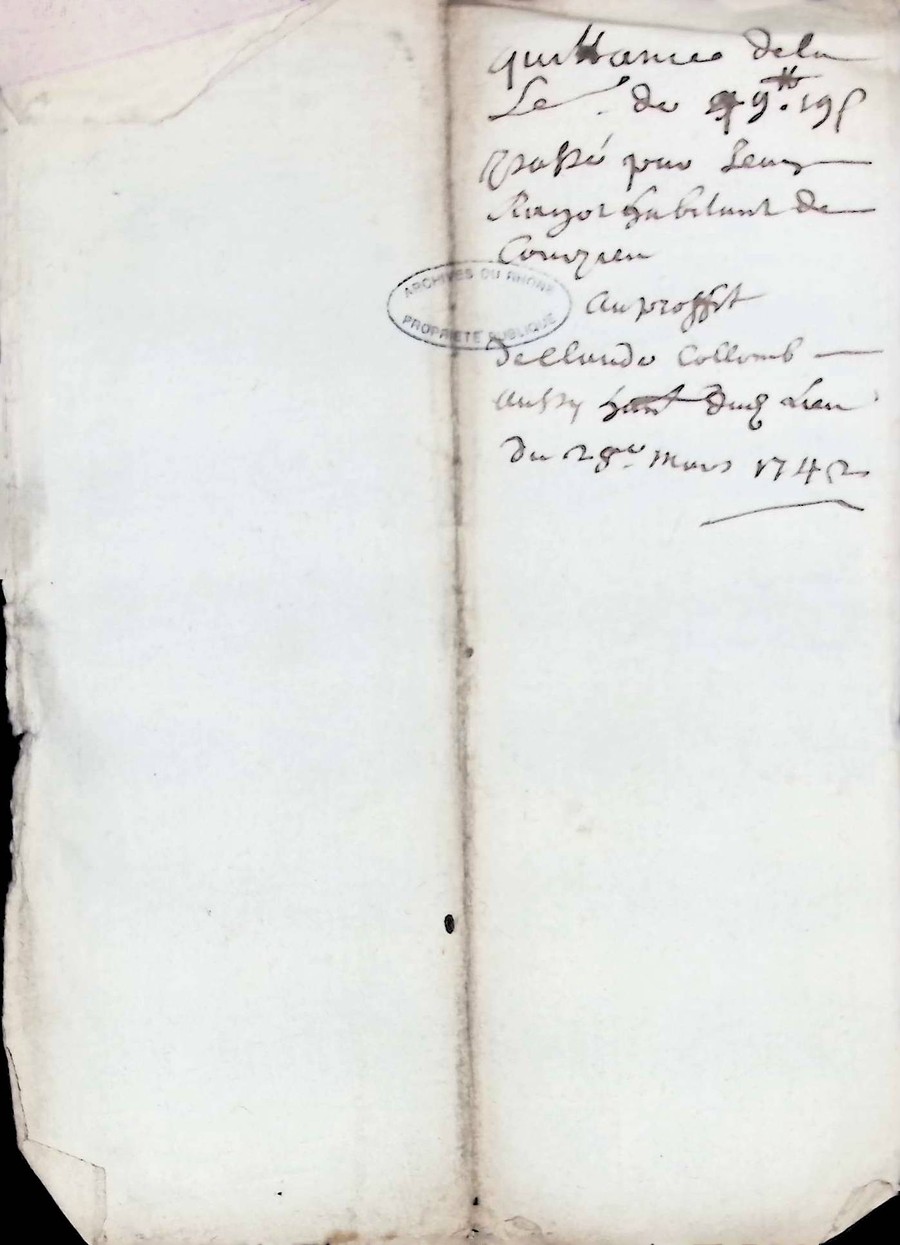 quittance dela
de 49ᵗᵗ. 19ˢ
passé par Jean
habitant de
Couzieu
ARCHIVES DU RHONE
PROPRIETE PUBLIQUE
au proffit
de Claude Collomb
aussy hant dud Lieu
du 28ᵉ. Mars 1742